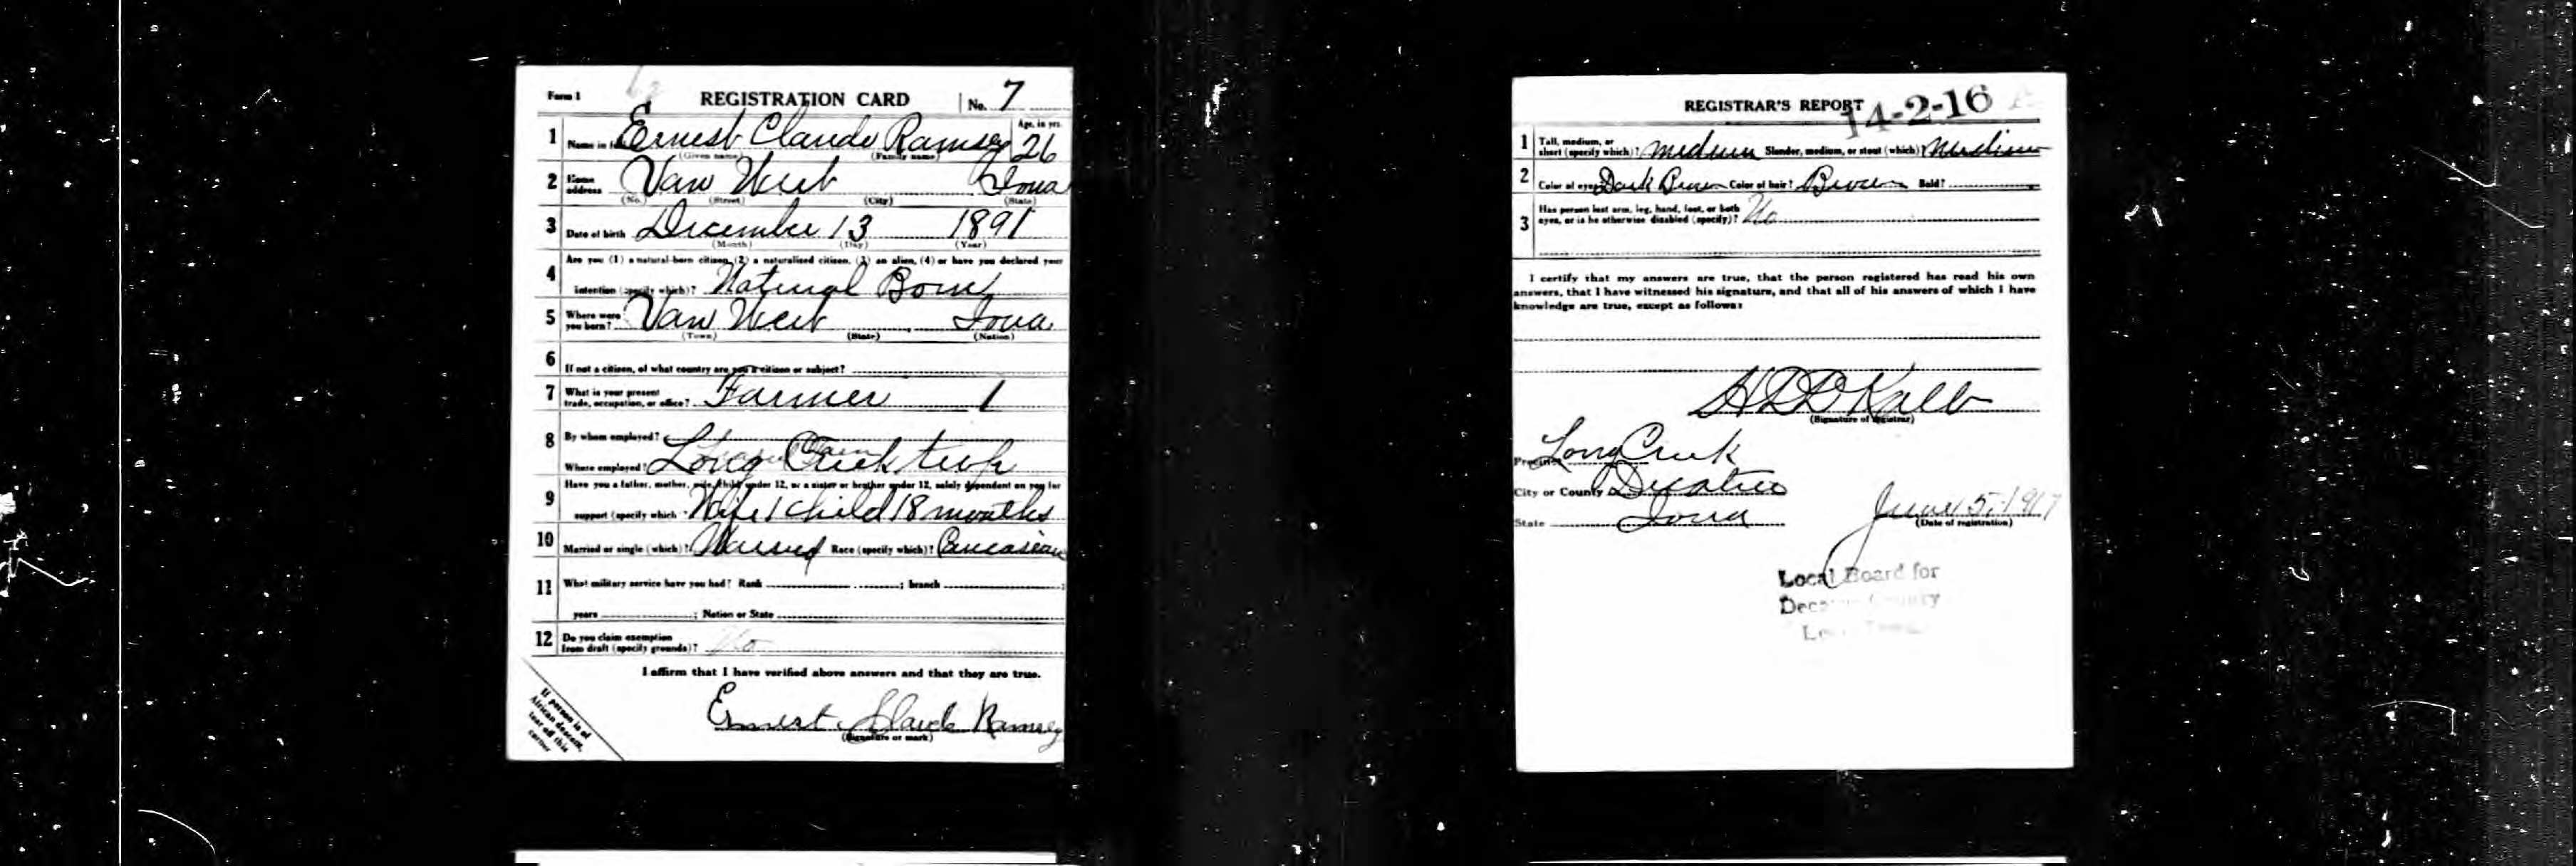 Form 1
REGISTRATION CARD
No. 7
1 Name in full Ernest Claude Ramsey
(Given name) (Family name)
Age, in yrs.
26
2 Home address Van Wert Iowa
(No.) (Street) (City) (State)
3 Date of birth December 13 1891
(Month) (Day) (Year)
4 Are you (1) a natural-born citizen, (2) a naturalized citizen, (3) an alien, (4) or have you declared your
intention (specify which)? Natural Born
5 Where were you born? Van Wert Iowa
(Town) (State) (Nation)
6 If not a citizen, of what country are you a citizen or subject?
7 What is your present trade, occupation, or office? Farmer 1
8 By whom employed?
Where employed? Long Creek twp
9 Have you a father, mother, wife, child under 12, or a sister or brother under 12, solely dependent on you for
support (specify which)? Wife 1 child 18 months
10 Married or single (which)? Married Race (specify which)? Caucasian
11 What military service have you had? Rank ; branch ;
years ; Nation or State
12 Do you claim exemption from draft (specify grounds)? No
I affirm that I have verified above answers and that they are true.
Ernest Claude Ramsey
(Signature or mark)
If person is of
African descent,
tear off this
corner
REGISTRAR'S REPORT
14-2-16 A
1 Tall, medium, or short (specify which)? medium Slender, medium, or stout (which)? Medium
2 Color of eyes? Dark Brown Color of hair? Brown Bald?
3 Has person lost arm, leg, hand, foot, or both eyes, or is he otherwise disabled (specify)? No
I certify that my answers are true, that the person registered has read his own
answers, that I have witnessed his signature, and that all of his answers of which I have
knowledge are true, except as follows:
(Signature of registrar)
Precinct Long Creek
City or County Decatur
State Iowa
June 5, 1917
(Date of registration)
Local Board for
Decatur County